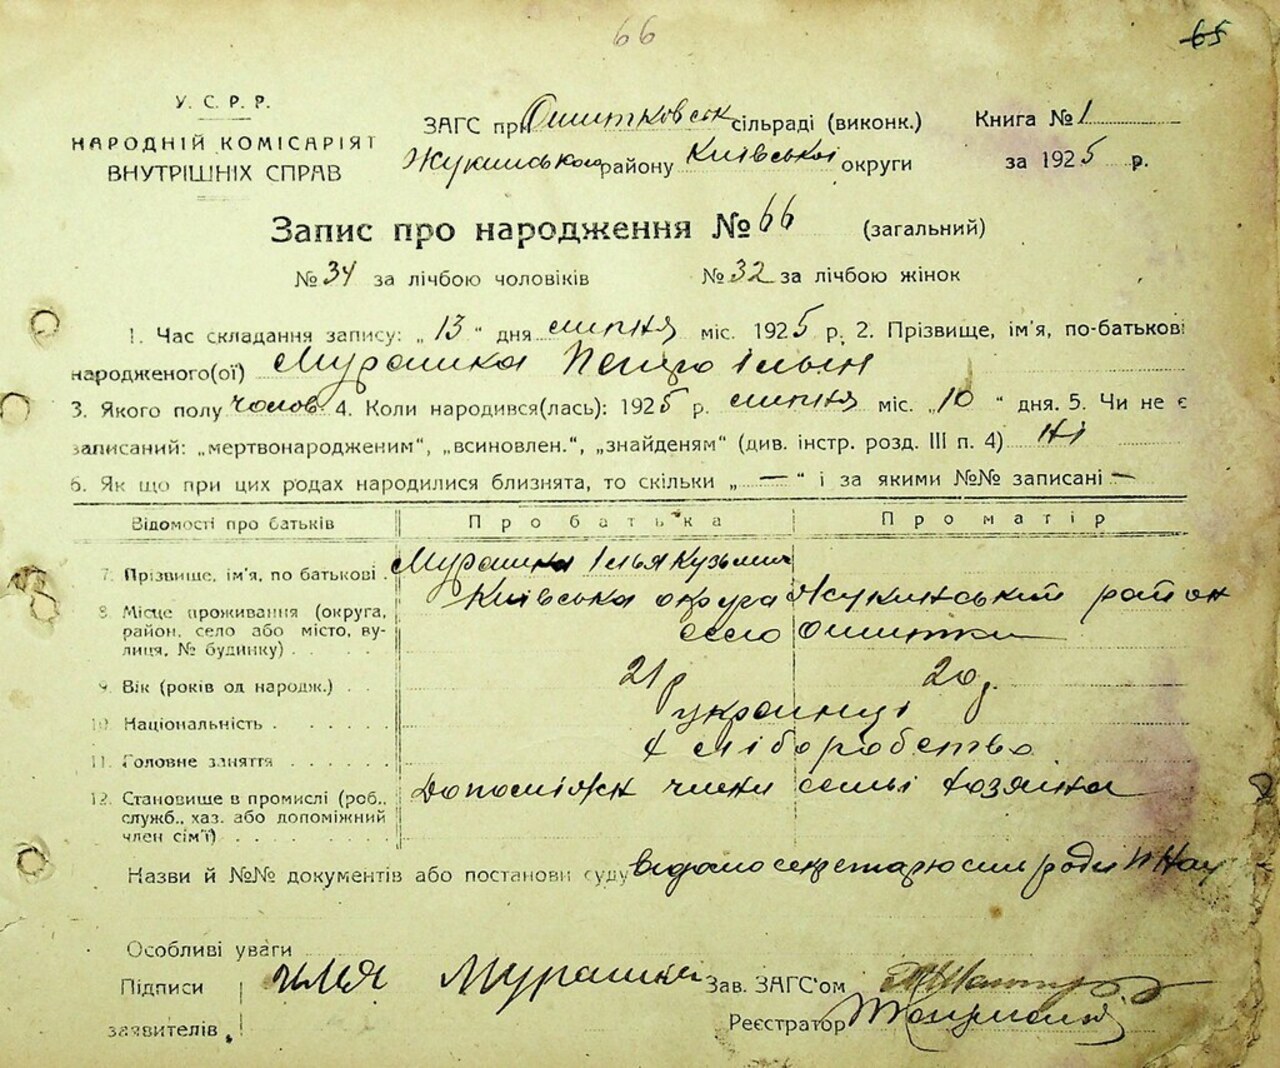 66
65
У. С. Р. Р.
НАРОДНІЙ КОМІСАРІЯТ
ВНУТРІШНІХ СПРАВ
ЗАГС при Ошитковськ сільраді (виконк.)
Жукинського району Київської округи
Книга № 1
за 1925 р.
Запис про народження № 66 (загальний)
№ 34 за лічбою чоловіків № 32 за лічбою жінок
1. Час складання запису: „13“ дня липня міс. 1925 р. 2. Прізвище, ім'я, по-батькові
народженого(ої) Мурашка Петро Ільїн
3. Якого полу чолов. 4. Коли народився(лась): 1925 р. липня міс. „10“ дня. 5. Чи не є
записаний: „мертвонародженим“, „всиновлен.“, „знайденям“ (див. інстр. розд. III п. 4) Ні
6. Як що при цих родах народилися близнята, то скільки „—“ і за якими №№ записані —
Відомості про батьків Про батька Про матір
7. Прізвище, ім'я, по батькові . Мурашка Ілья Кузьмич
8. Місце проживання (округа, Київська округа Жукинський район
район, село або місто, ву- село Ошитки
лиця, № будинку) . . . . .
9. Вік (років од народж.) . . 21 р 20 р.
10. Національність . . . . . . українці
11. Головне заняття . . . . . . хліборобство
12. Становище в промислі (роб., Допоміжн члени семьі хозяина
служб., хаз. або допоміжний
член сім'ї) . . . . . . . .
Назви й №№ документів або постанови суду видано секретарю сіл ради
Особливі уваги
Підписи Илья Мурашка Зав. ЗАГС'ом
заявителів Реєстратор